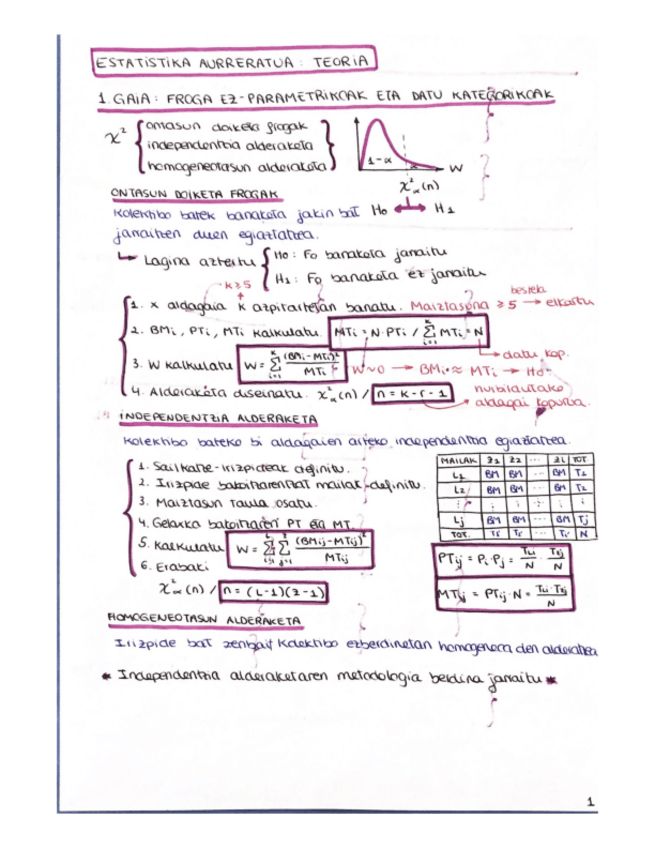 ESTATISTIKA AURRERATUA: TEORIA
1.GAIA: FROGA EZ-PARAMETRIKOAK ETA DATU KATEGORIKOAK
χ² { ontasun doiketa frogak
independentzia alderaketa
homogeneotasun alderaketa }
1-α α W
χ²α(n)
ONTASUN DOIKETA FROGAK
Kolektibo batek banaketa jakin bat H₀ ↔ H₁
jarraitzen duen egiaztatzea.
↳ Lagina aztertu { H₀: F₀ banaketa jarraitu
H₁: F₀ banaketa ez jarraitu
k≥5
1. X aldagaia k azpitartetan banatu. Maiztasuna ≥ 5 → bestela elkartu
2. BMi, PTi, MTi kalkulatu. MTi = N·PTi / Σ(i=1..k) MTi = N
→ datu kop.
3. W kalkulatu W = Σ(i=1..k) (BMi-MTi)²/MTi W~0 → BMi ≈ MTi → H₀
4. Alderaketa diseinatu. χ²α(n) / n = k-r-1 → aldagai kopurua.
INDEPENDENTZIA ALDERAKETA
Kolektibo bateko bi aldagaien arteko independentzia egiaztatzea.
1. Sailkatze-irizpideak definitu.
2. Irizpide bakoitzarentzat mailak definitu.
3. Maiztasun taula osatu.
4. Gelaxka bakoitzaren PT eta MT.
5. Kalkulatu W = Σ(i=1..L) Σ(j=1..z) (BMij-MTij)²/MTij
6. Erabaki
χ²α(n) / n = (L-1)(z-1)
MAILAK z1 z2 ... zi TOT
L1 BM BM ... BM T1
L2 BM BM ... BM T2
⋮ ⋮ ⋮ ⋮ ⋮ ⋮
Lj BM BM ... BM Tj
TOT. Ti Ti ... Ti N
PTij = Pi·Pj = Tui/N · Tzj/N
MTij = PTij·N = Tui·Tzj/N
HOMOGENEOTASUN ALDERAKETA
Irizpide bat zenbait kolektibo ezberdinetan homogeneoa den alderatzea
* Independentzia alderaketaren metodologia berdina jarraitu *
1